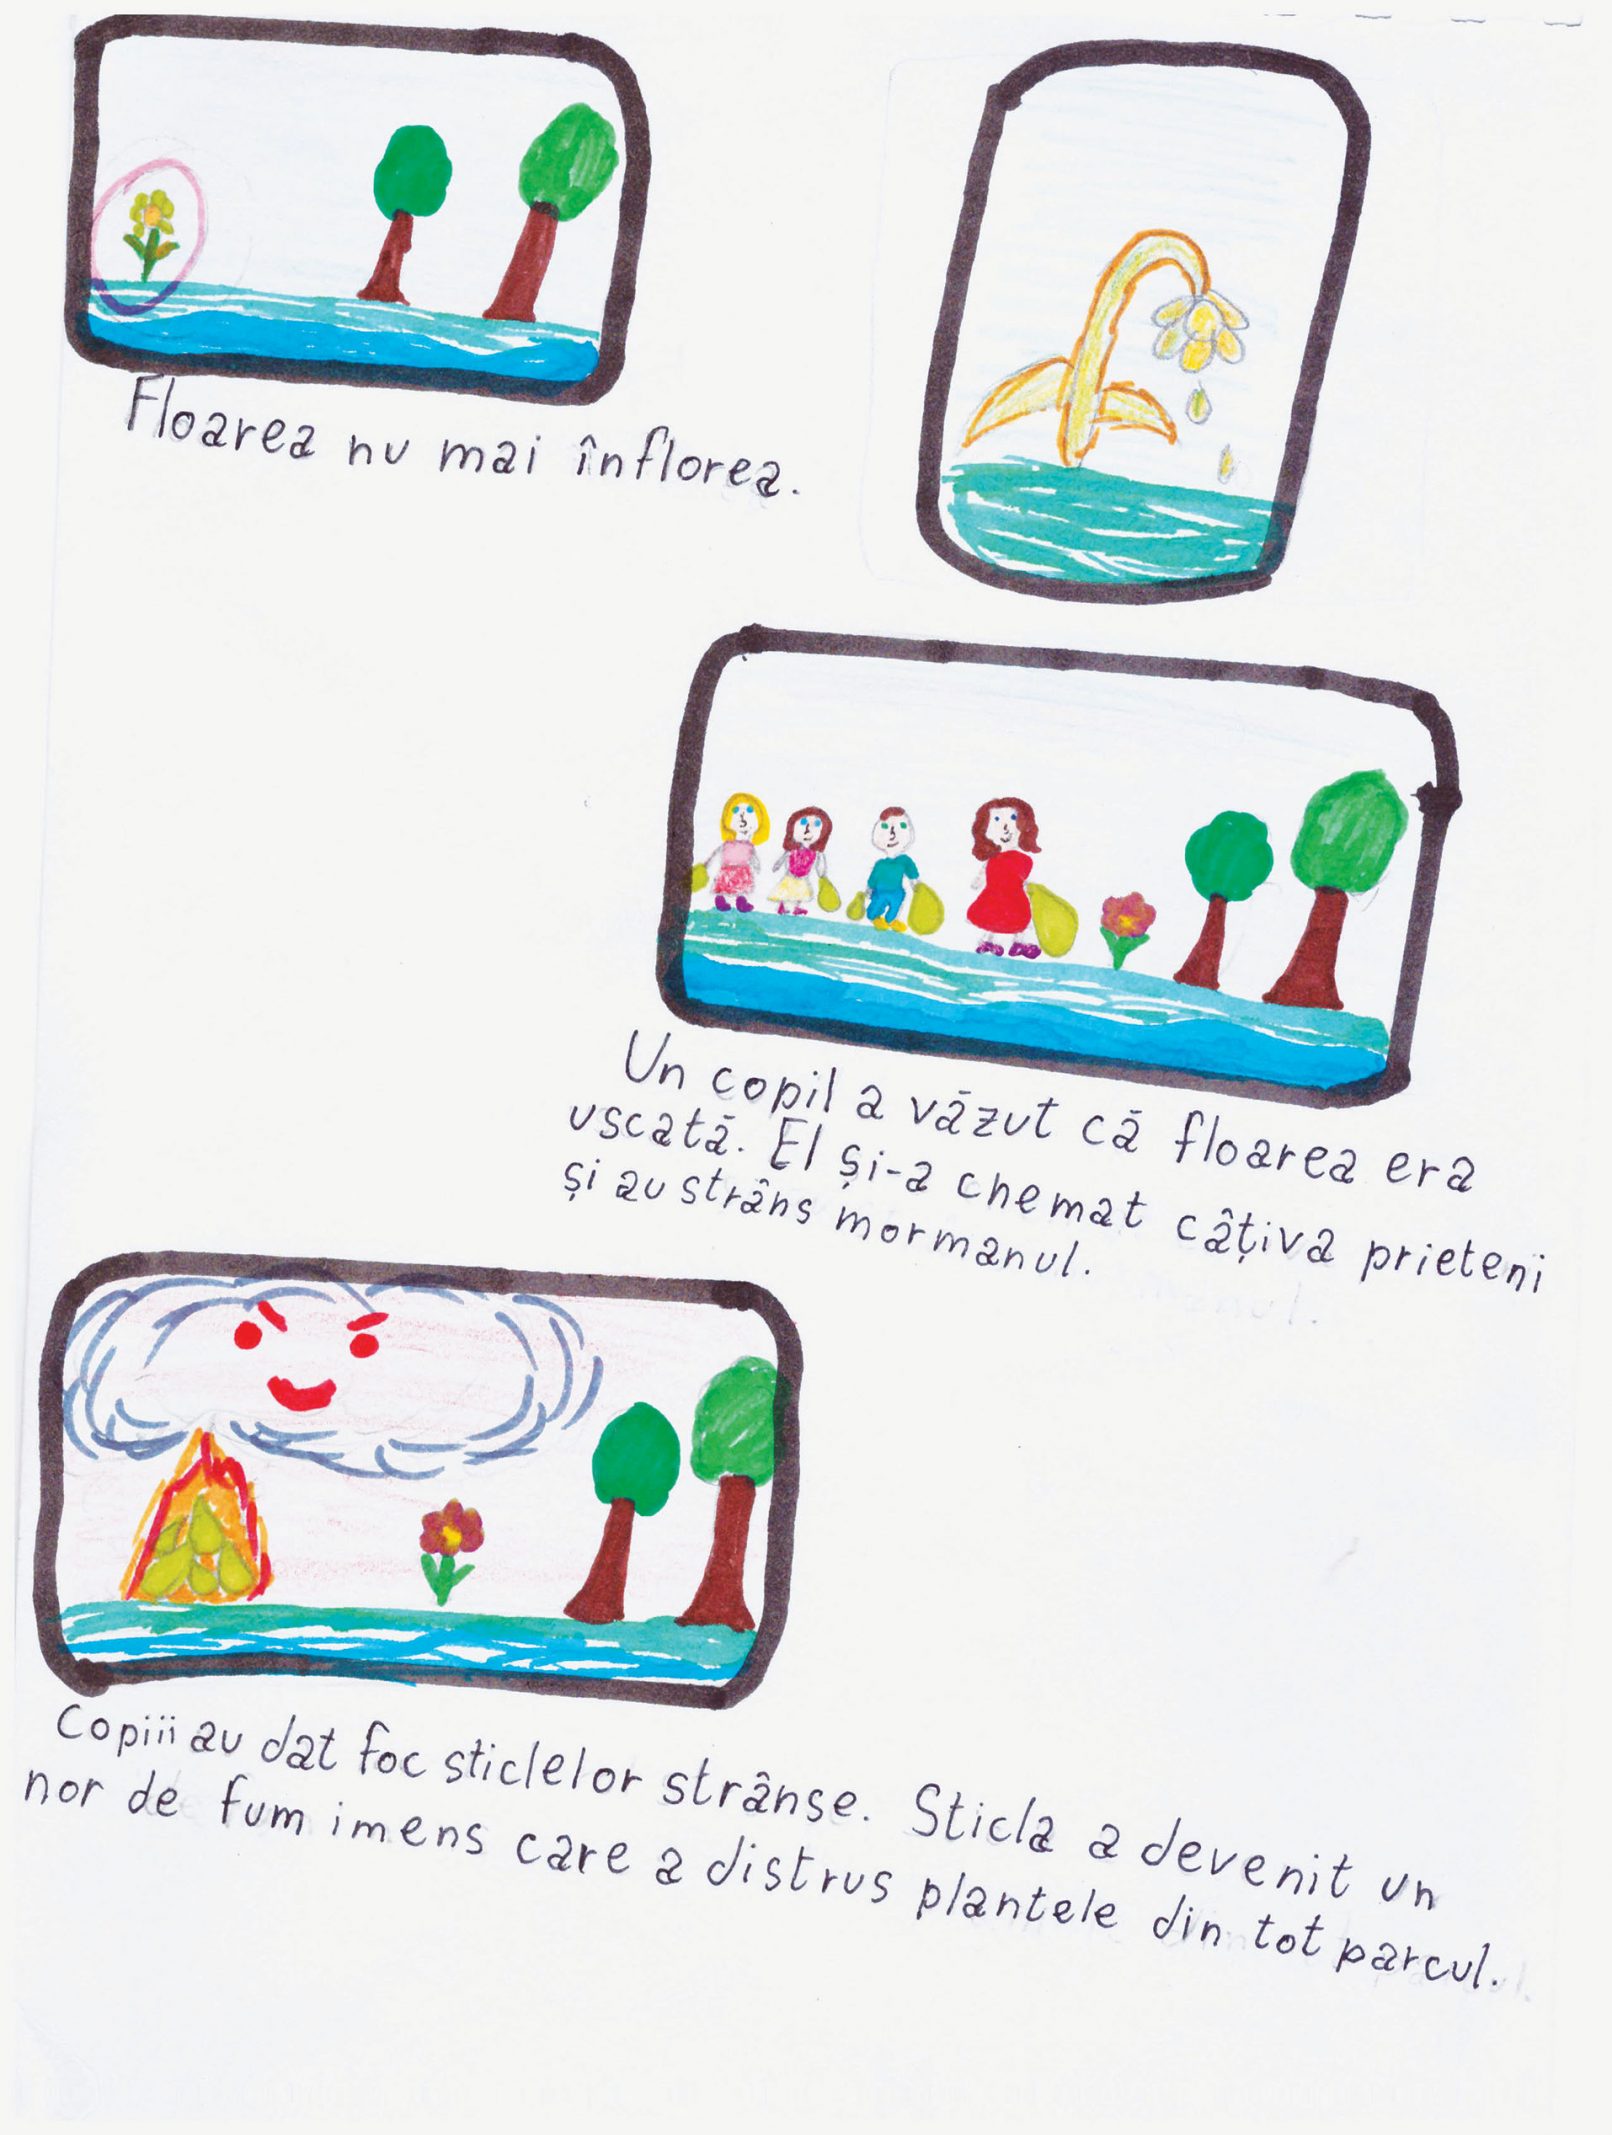 Floarea nu mai înflorea.
Un copil a văzut că floarea era
uscată. El și-a chemat câțiva prieteni
și au strâns mormanul.
Copiii au dat foc sticlelor strânse. Sticla a devenit un
nor de fum imens care a distrus plantele din tot parcul.